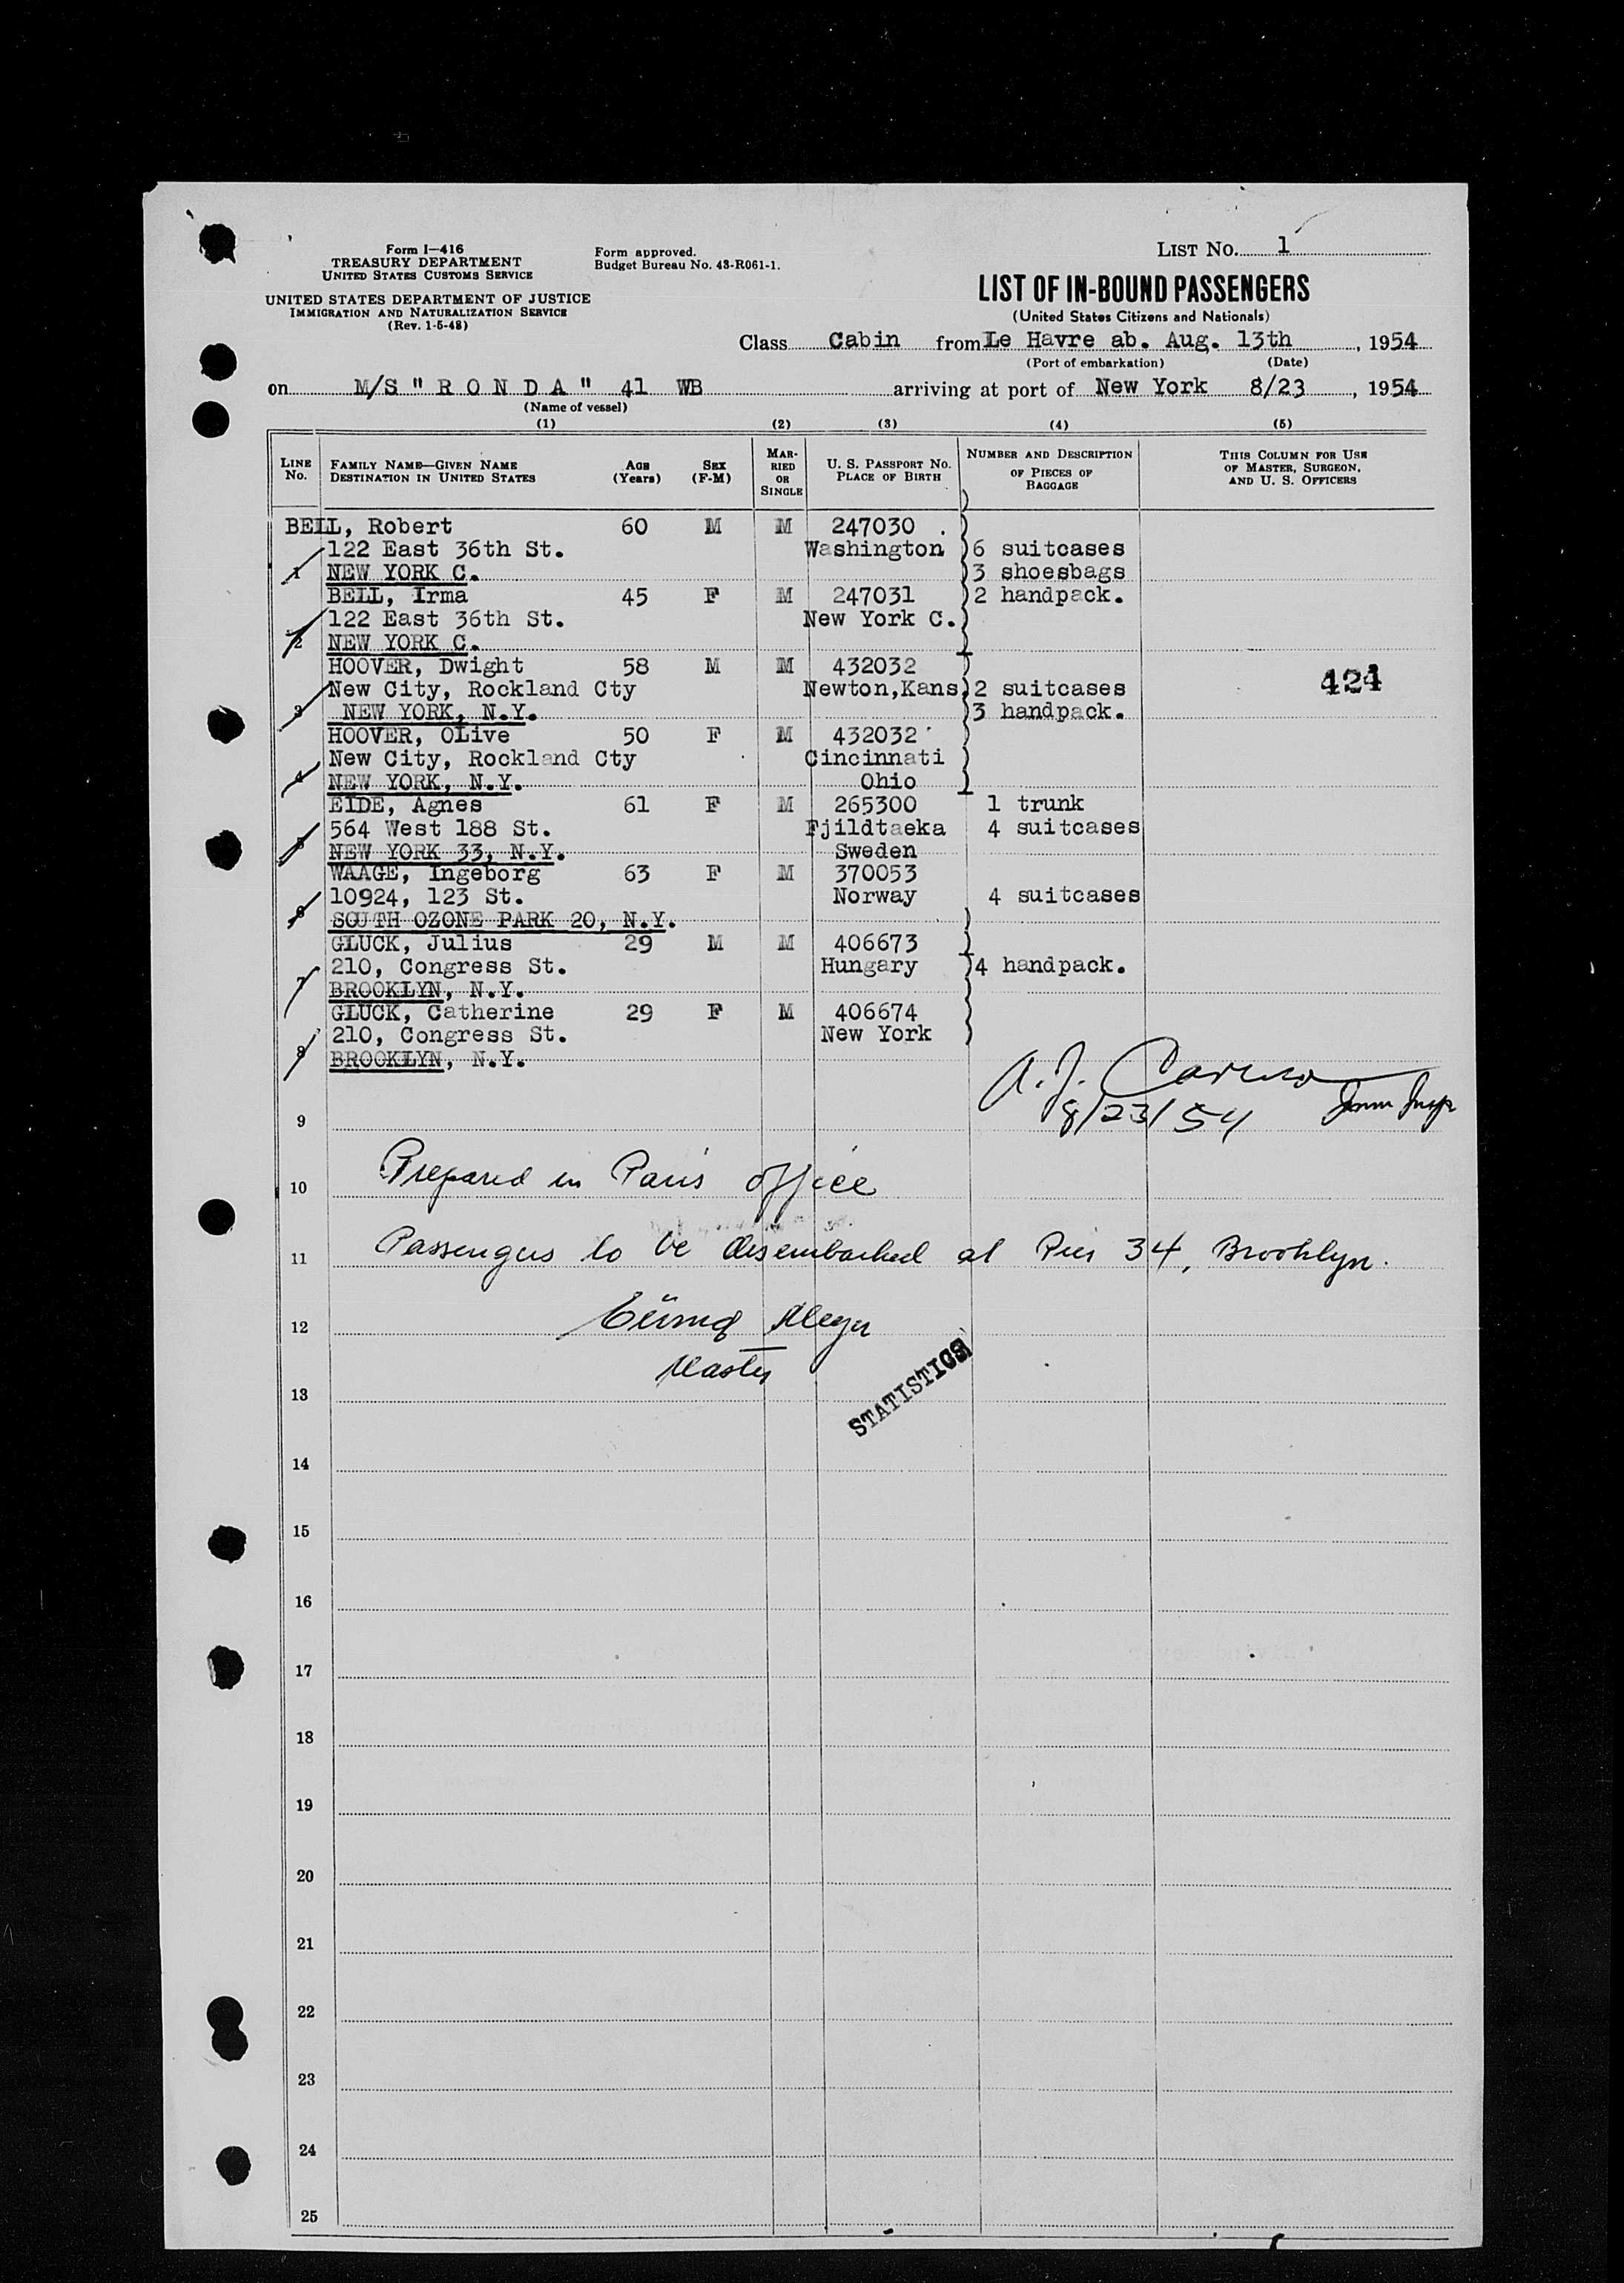 Form I—416
TREASURY DEPARTMENT
UNITED STATES CUSTOMS SERVICE
UNITED STATES DEPARTMENT OF JUSTICE
IMMIGRATION AND NATURALIZATION SERVICE
(Rev. 1-5-48)
Form approved.
Budget Bureau No. 43-R061-1.
LIST NO. 1
LIST OF IN-BOUND PASSENGERS
(United States Citizens and Nationals)
Class Cabin from Le Havre ab. Aug. 13th, 1954
(Port of embarkation) (Date)
on M/S "R O N D A" 41 WB arriving at port of New York 8/23, 1954
(Name of vessel)
(1) (2) (3) (4) (5)
LINE No. FAMILY NAME—GIVEN NAME DESTINATION IN UNITED STATES AGE (Years) SEX (F-M) MARRIED OR SINGLE U. S. PASSPORT NO. PLACE OF BIRTH NUMBER AND DESCRIPTION OF PIECES OF BAGGAGE THIS COLUMN FOR USE OF MASTER, SURGEON, AND U. S. OFFICERS
BELL, Robert 60 M M 247030
122 East 36th St. Washington 6 suitcases
1 NEW YORK C. 3 shoesbags
BELL, Irma 45 F M 247031 2 handpack.
122 East 36th St. New York C.
2 NEW YORK C.
HOOVER, Dwight 58 M M 432032
New City, Rockland Cty Newton,Kans 2 suitcases 424
3 NEW YORK, N.Y. 3 handpack.
HOOVER, OLive 50 F M 432032
New City, Rockland Cty Cincinnati
4 NEW YORK, N.Y. Ohio
EIDE, Agnes 61 F M 265300 1 trunk
564 West 188 St. Fjildtaeka 4 suitcases
5 NEW YORK 33, N.Y. Sweden
WAAGE, Ingeborg 63 F M 370053
10924, 123 St. Norway 4 suitcases
6 SOUTH OZONE PARK 20, N.Y.
GLUCK, Julius 29 M M 406673
210, Congress St. Hungary 4 handpack.
7 BROOKLYN, N.Y.
GLUCK, Catherine 29 F M 406674
210, Congress St. New York
8 BROOKLYN, N.Y.
A. J. Caruso
8/23/54 Imm Insp
9
10 Prepared in Paris office
11 Passengers to be disembarked at Pier 34, Brooklyn.
12 Meyer
Master
STATISTICS
13
14
15
16
17
18
19
20
21
22
23
24
25